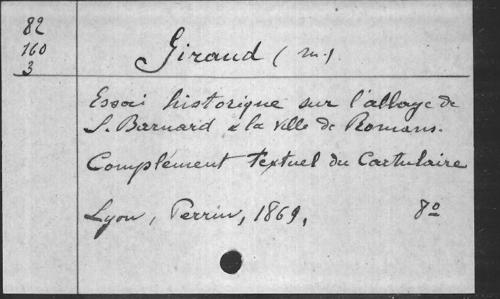 82
160
3
Giraud (M.)
Essai historique sur l'abbaye de
S. Barnard & la ville de Romans.
Complément textuel du Cartulaire
Lyon, Perrin, 1869, 8o